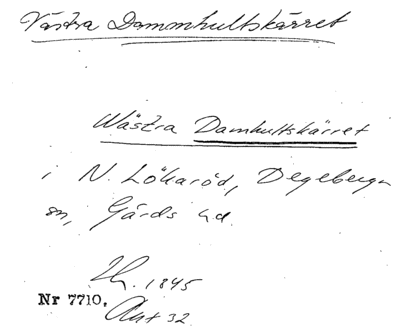 Västra Dammhultskärret
Wästra Damhultskärret
i N. Lökaröd, Degeberga
sn, Gärds hd.
1845
Nr 7710.
Akt 32